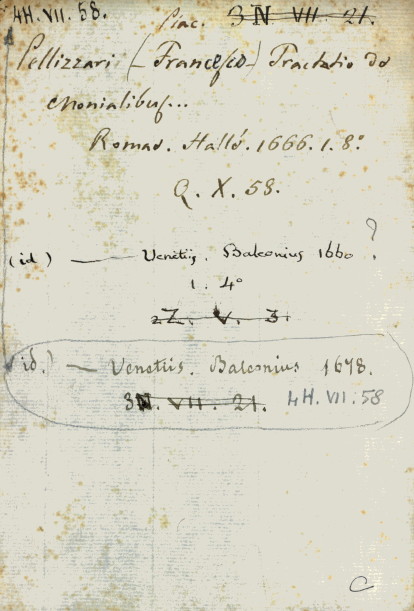 4H. VII. 58.
Piac. 3N VII. 21.
Pellizzari (Francesco) Tractatio de
Monialibus...
Romae. Hallé. 1666. 1. 8°
Q. X. 58.
(id) — Venetiis. Balconius 1660 ?
1. 4°
2Z. V. 3.
(id.) — Venetiis. Balconius 1678.
3N. VII. 21. 4H. VII. 58
C